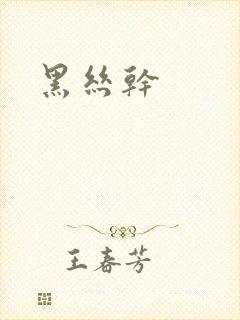 黑丝幹
王春芳